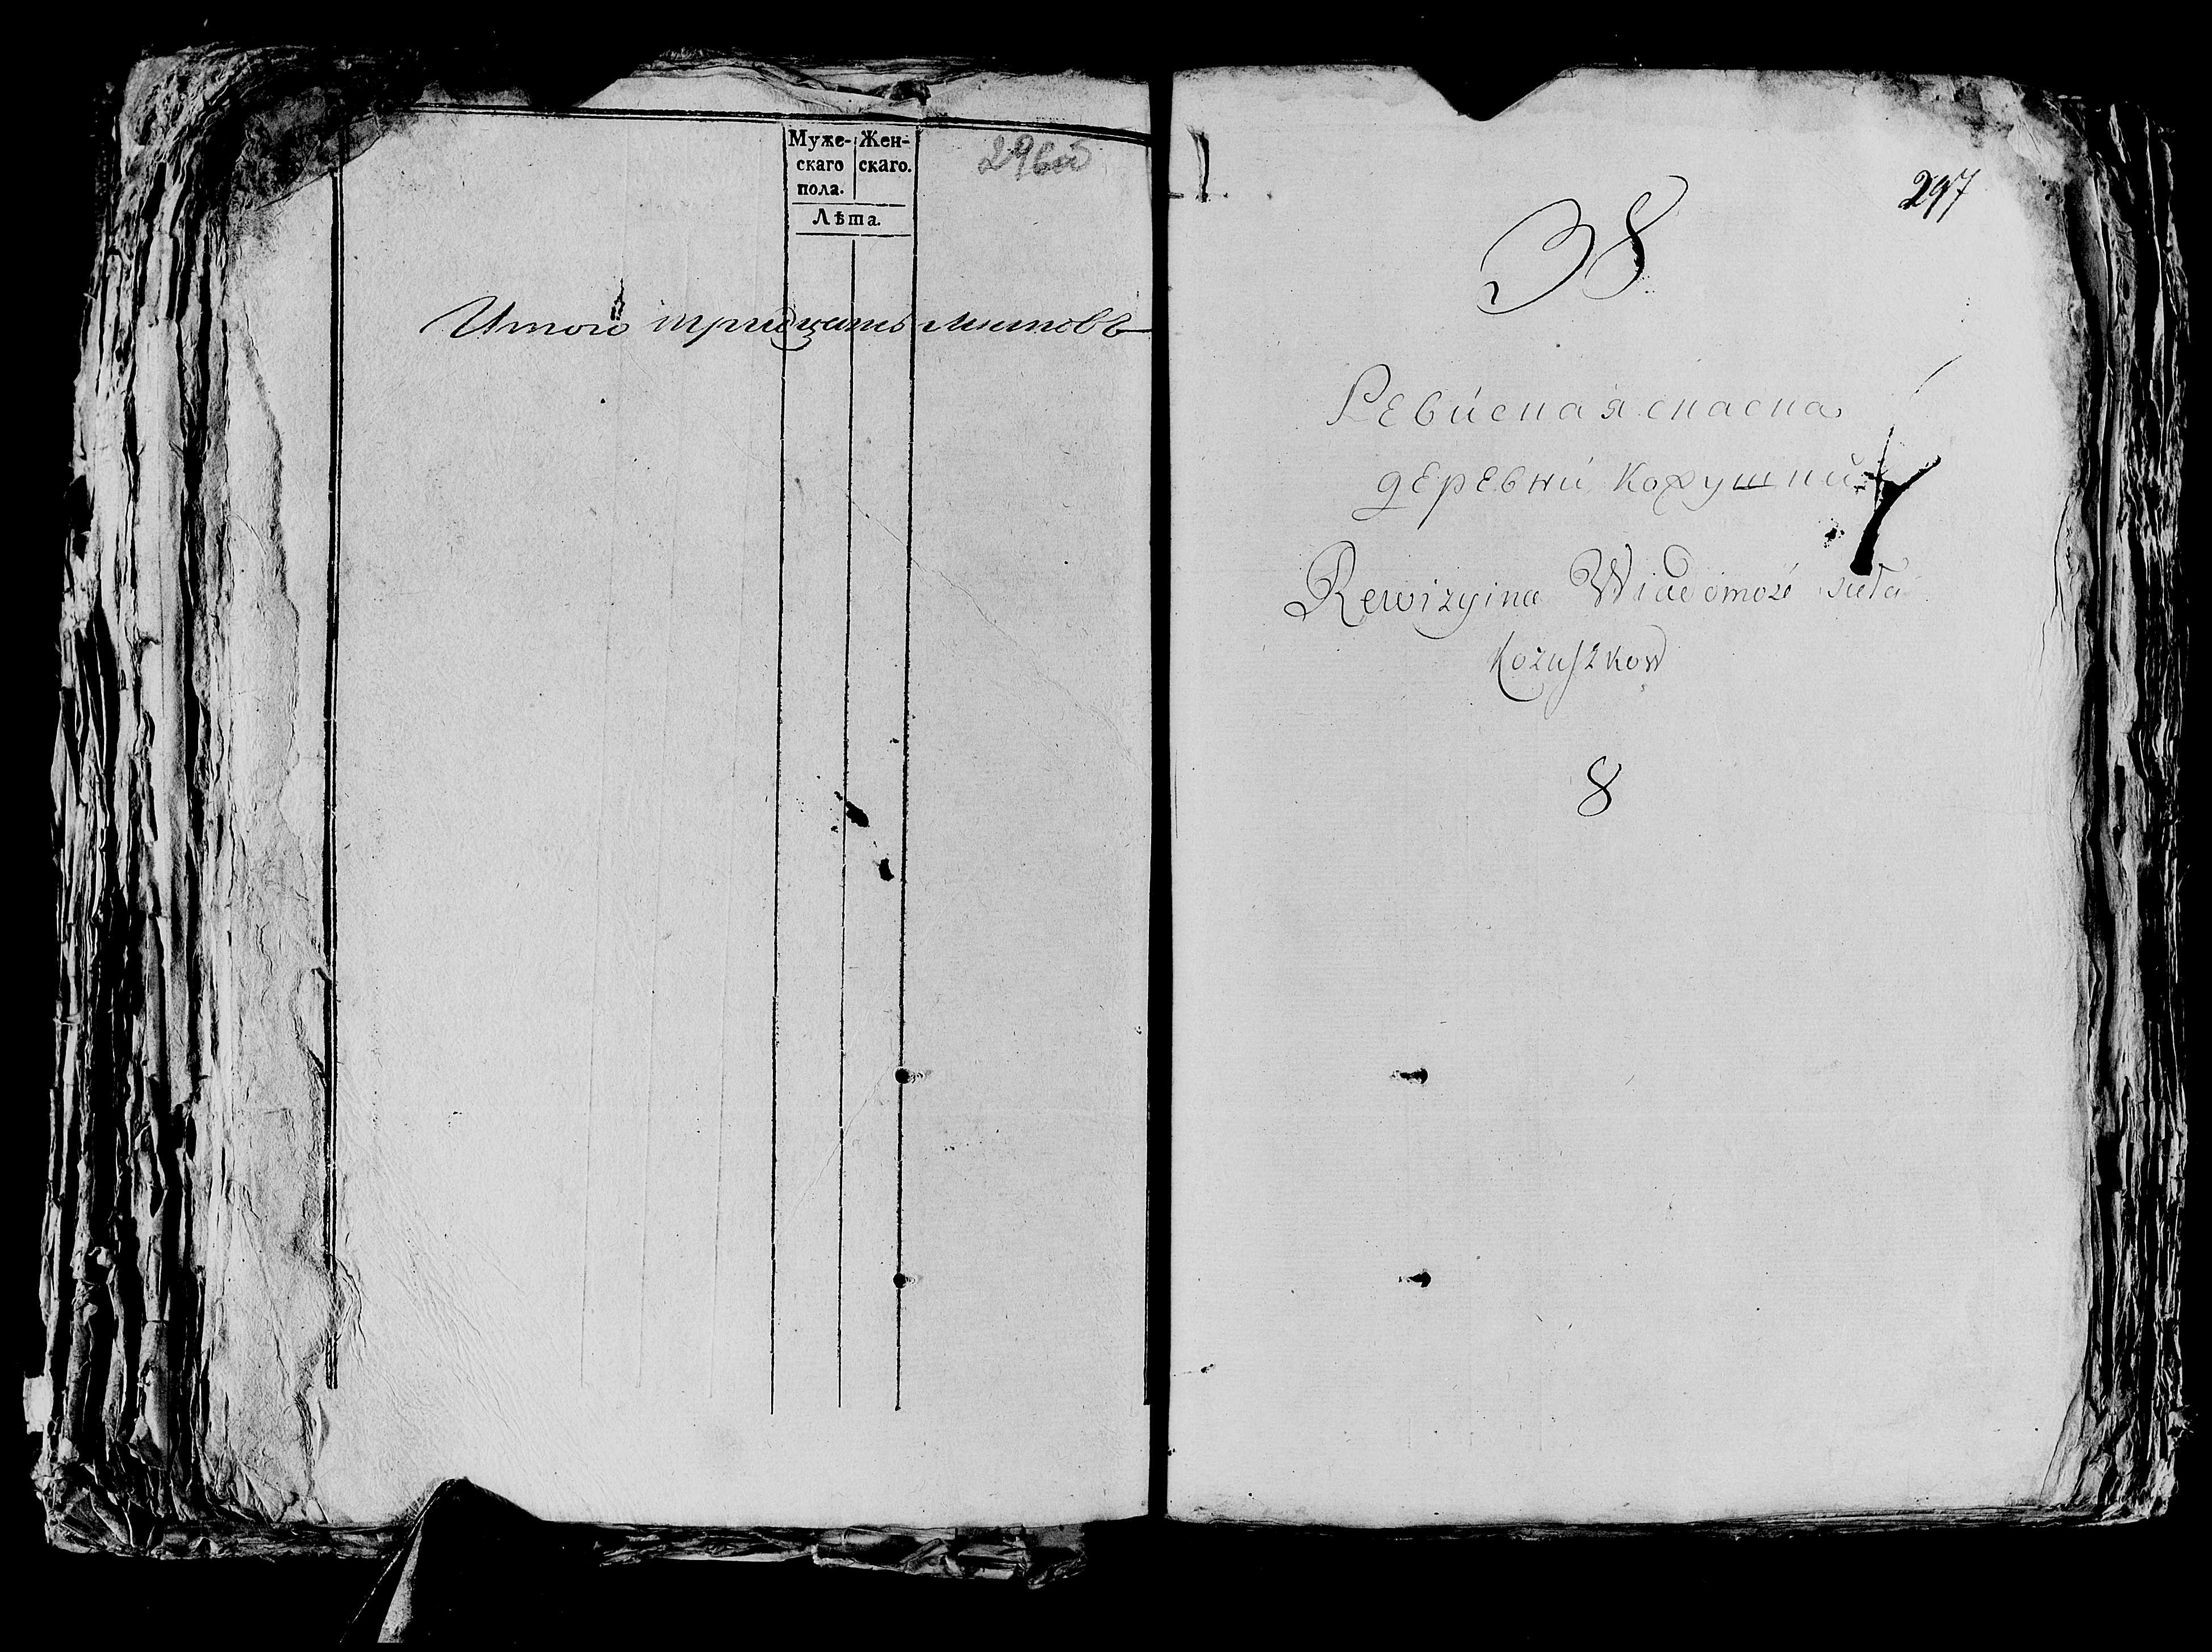 Муже-
скаго
пола.
Жен-
скаго.
Лѣта.
296об
Итого тридцать листовъ
297
38
Ревиская скаска
деревни Кожушки
Rewizyina Wiadomość sieła
Kozuszkow
8